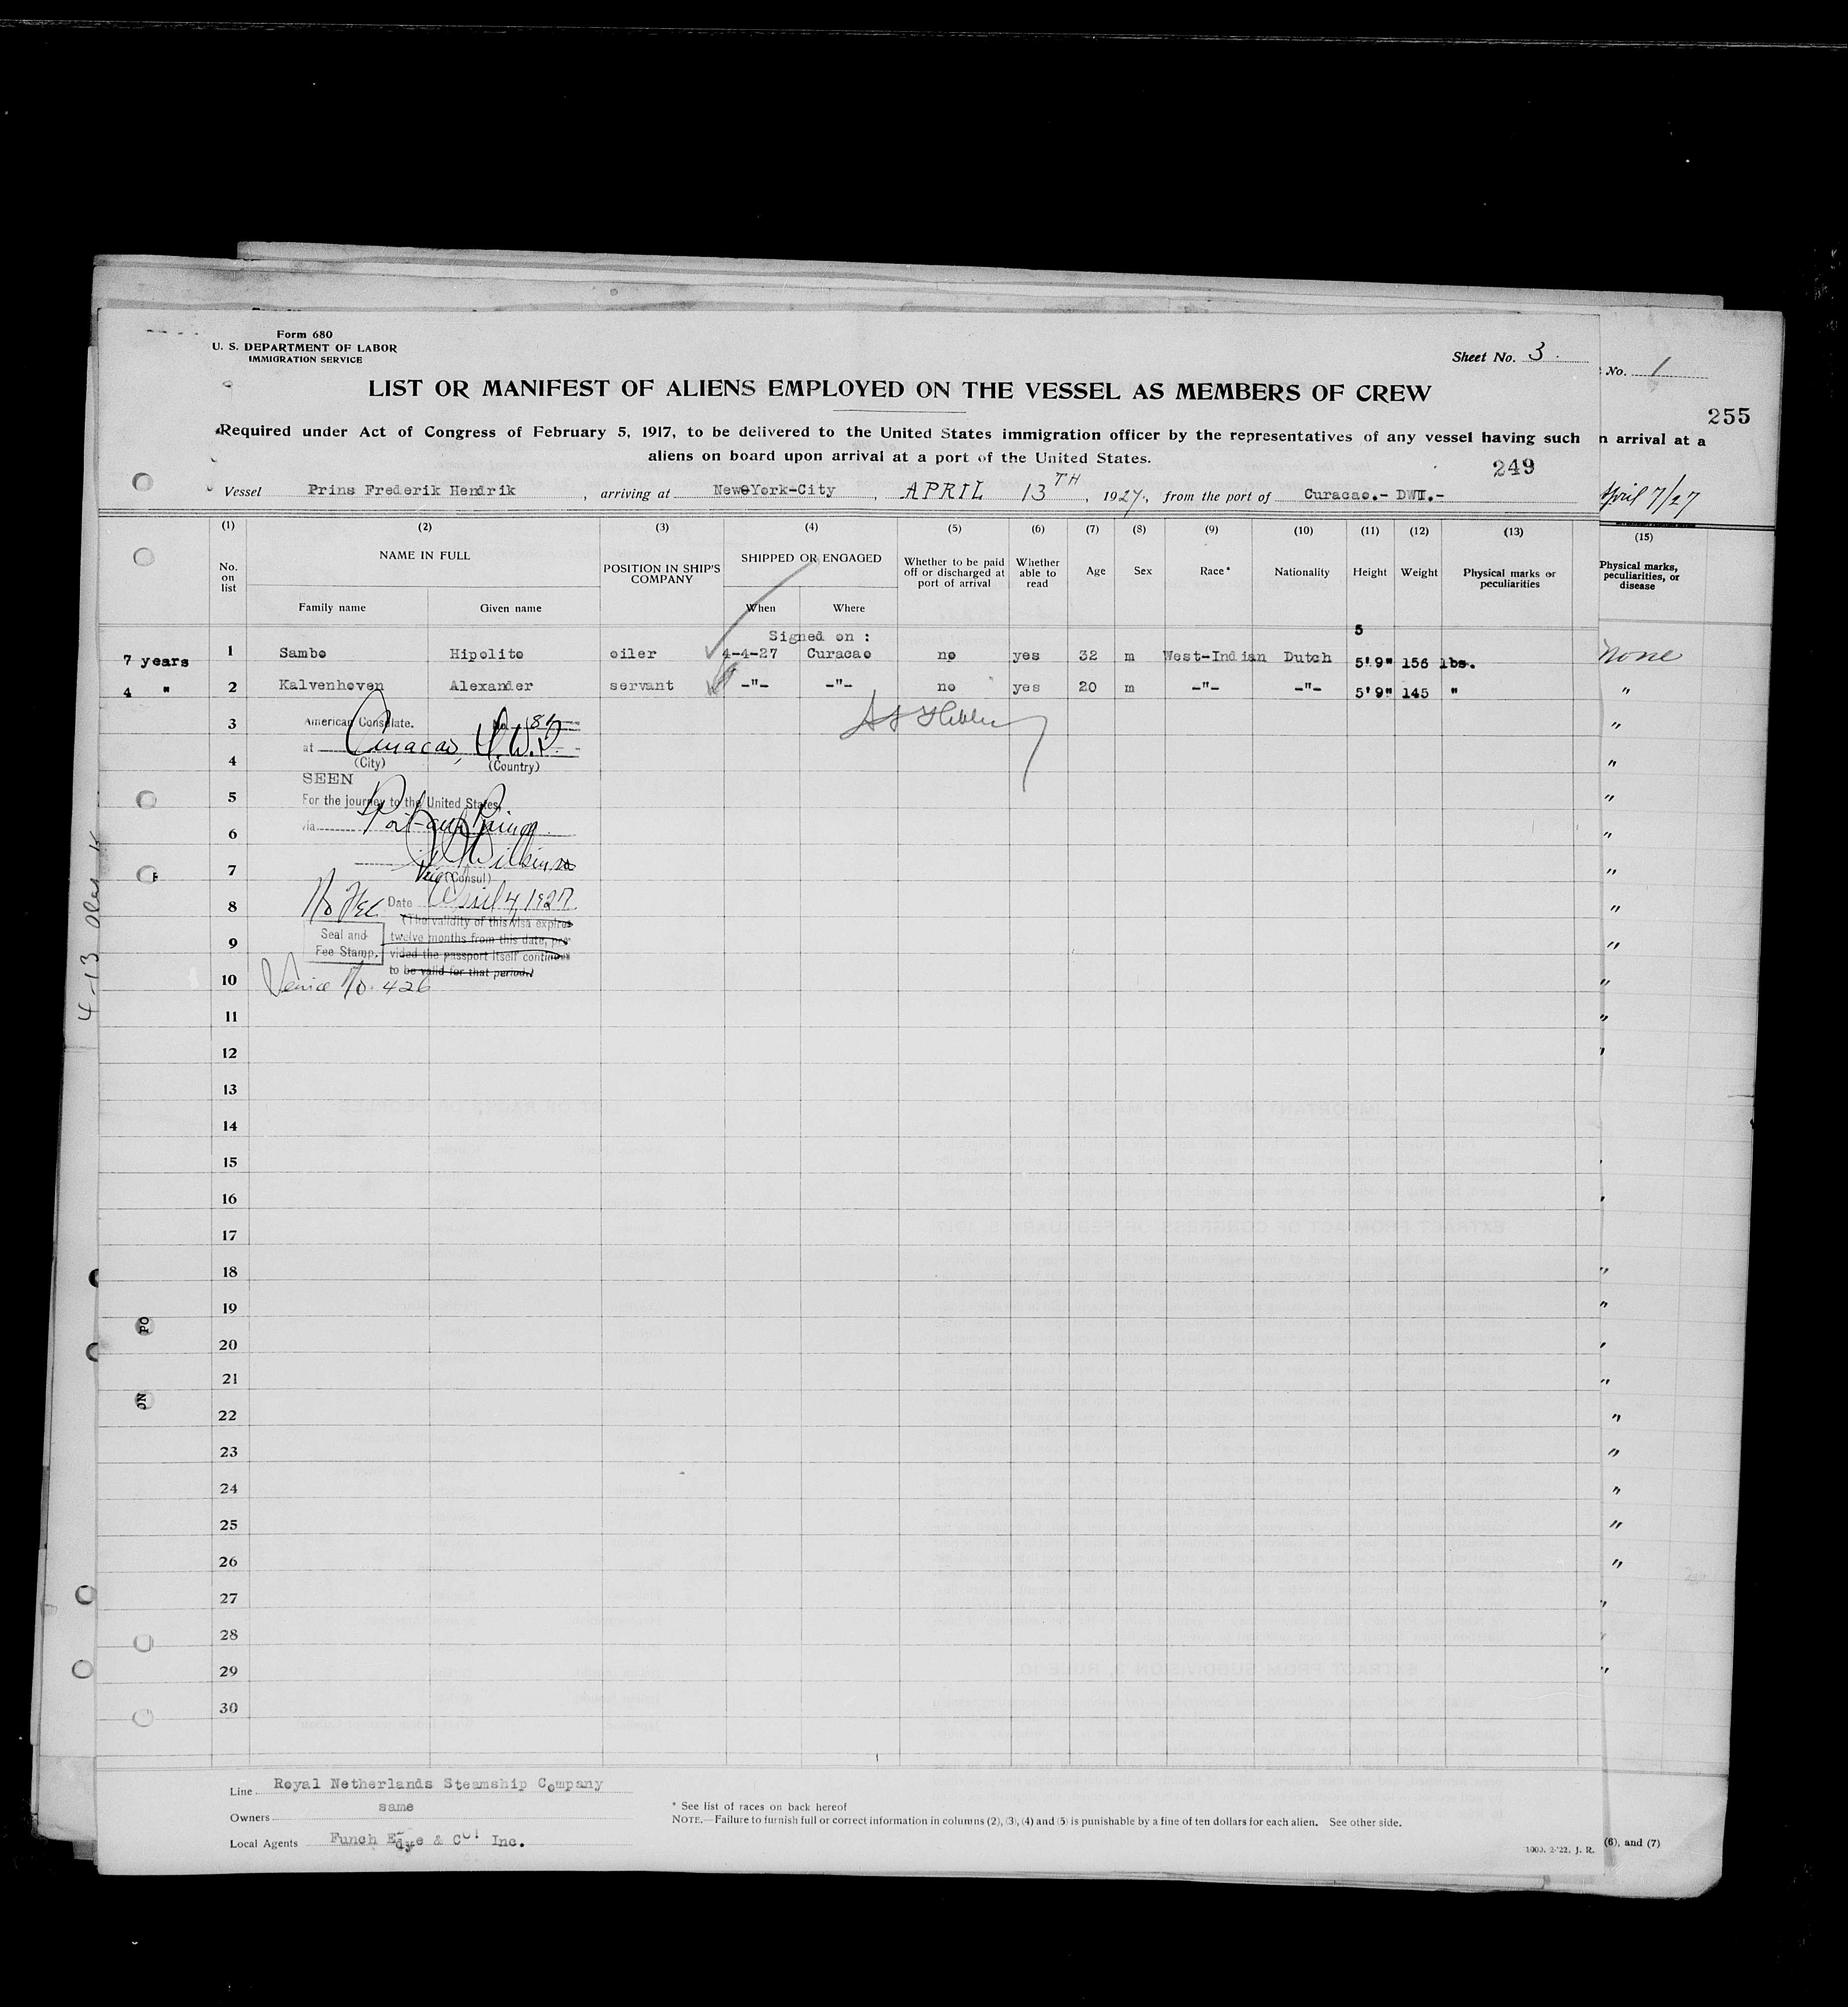 Form 680
U. S. DEPARTMENT OF LABOR
IMMIGRATION SERVICE
Sheet No. 3
No. 1
LIST OR MANIFEST OF ALIENS EMPLOYED ON THE VESSEL AS MEMBERS OF CREW
255
Required under Act of Congress of February 5, 1917, to be delivered to the United States immigration officer by the representatives of any vessel having such
n arrival at a
aliens on board upon arrival at a port of the United States.
249
Vessel Prins Frederik Hendrik , arriving at New York-City , APRIL 13TH , 1927, from the port of Curacao.- DWI.-
April 7/27
(1) (2) (3) (4) (5) (6) (7) (8) (9) (10) (11) (12) (13)
(15)
No. on list
NAME IN FULL
Family name Given name
POSITION IN SHIP'S COMPANY
SHIPPED OR ENGAGED
When Where
Whether to be paid off or discharged at port of arrival
Whether able to read
Age Sex Race* Nationality Height Weight
Physical marks or peculiarities
Physical marks, peculiarities, or disease
Signed on : 5
7 years 1 Sambo Hipolito oiler 4-4-27 Curacao no yes 32 m West-Indian Dutch 5'9" 156 lbs. none
4 " 2 Kalvenhoven Alexander servant -"- -"- no yes 20 m -"- -"- 5'9" 145 " "
3
American Consulate. No. 187
at Curacao, D.W.I.
4
(City) (Country)
SEEN
5
For the journey to the United States,
6
via Port-au-Prince
Wilkinson
7
Vice (Consul)
8
No Fee Date April 4, 1927
(The validity of this visa expires
9
Seal and Fee Stamp.
twelve months from this date, pro-
vided the passport itself continues
to be valid for that period.)
10
Service No. 426
11
12
13
14
15
16
17
18
19
20
21
22
23
24
25
26
27
28
29
30
4-13
Line Royal Netherlands Steamship Company
Owners same
Local Agents Funch Edye & Co. Inc.
* See list of races on back hereof
NOTE.—Failure to furnish full or correct information in columns (2), (3), (4) and (5) is punishable by a fine of ten dollars for each alien. See other side.
(6), and (7)